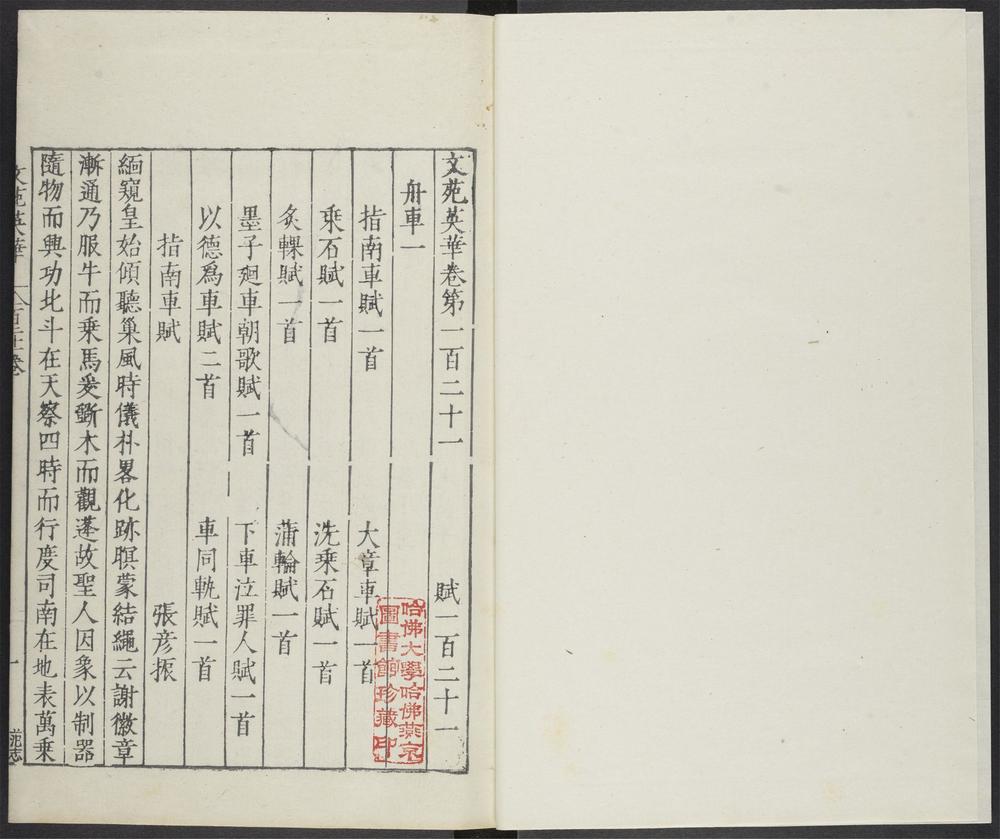 文苑英華卷第一百二十一 賦一百二十一
舟車一
指南車賦一首 大章車賦一首
乘石賦一首 洗乘石賦一首
炙輠賦一首 蒲輪賦一首
墨子廻車朝歌賦一首 下車泣罪人賦一首
以德爲車賦二首 車同軌賦一首
指南車賦 張彦振
緬窺皇始傾聽巢風時儀朴畧化跡瞑蒙結繩云謝徽章
漸通乃服牛而乗馬爰斵木而觀蓬故聖人因象以制器
隨物而興功北斗在天察四時而行度司南在地表萬乗
文苑英華
一
哈佛大學哈佛燕京
圖書館珍藏印